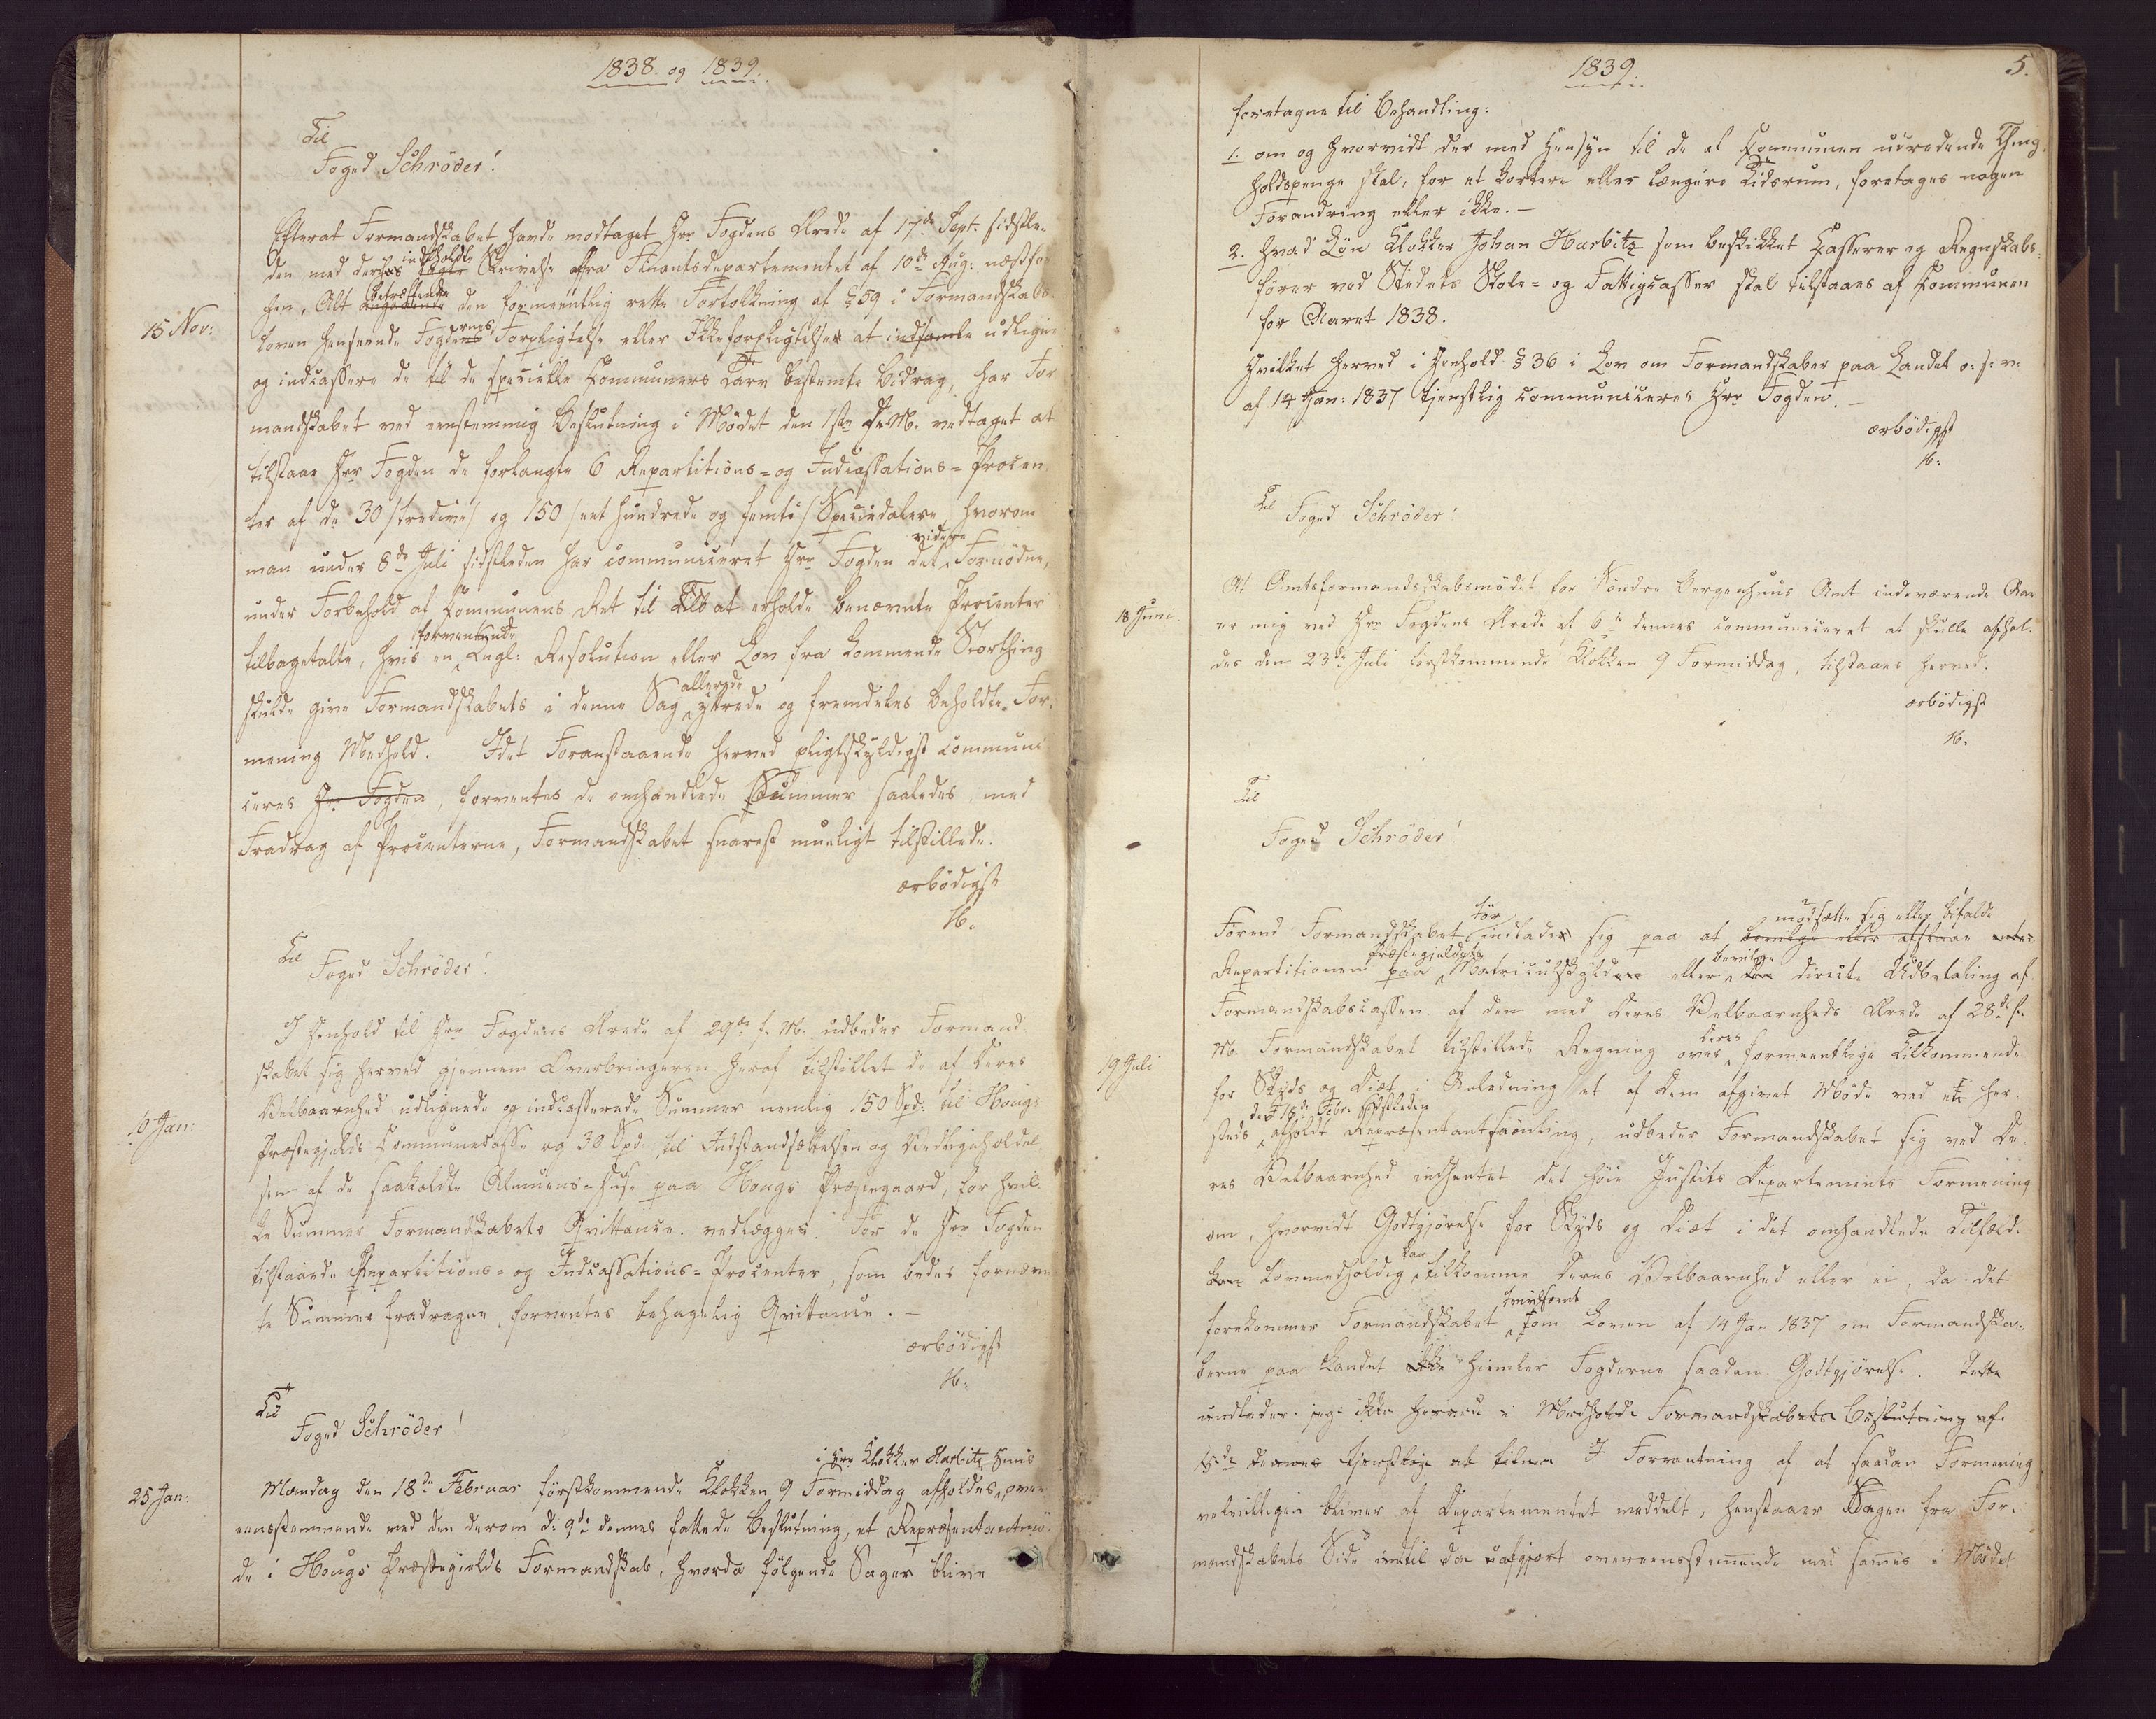 1838. og 1839.
Til
Foged Schröder!
15 Nov:
Efterat Formandskabet havde modtaget Hrr Fogdens Brede af 17de Sept. sidstle-
den med deri indeholdte Skrivelse fra Finantsdepartementet af 10de Aug: næstfor
hen, Alt betræffende den formeentlig rette Fortolkning af § 59 i Formandskabs-
loven henseende Fogdernes Forpligtelse eller Ikkeforpligtelse at indsamle udligne
og indcassere de til de specielle Communers Tarv bestemte Bidrag, har For
mandskabet ved eenstemmig Beslutning i Mødet den 1ste d. M. vedtaget at
tilstaae Hrr Fogden de forlangte 6 Repartitions- og Indcassations-Procen
ter af de 30 /tredive/ og 150 /eet hundrede og femti/ Speciedalere, hvorom
man under 8de Juli sidstleden har communiceret Hrr Fogden det videre Fornødne,
under Forbehold af Communens Ret til at erholde benævnte Procenter
tilbagetalte, hvis en forventende Kngl: Resolution eller Lov fra kommende Storthing
skulde give Formandskabets i denne Sag allerede yttrede og fremdeles beholdte For-
mening Medhold. Idet Foranstaaende herved pligtskyldigst communi
ceres Hrr Fogden, forventes de omhandlede Summer saaledes, med
Fradrag af Procenterne, Formandskabet snarest mueligt tilstillede.
ærbödigst
H.
Til
Foged Schröder!
10 Jan:
I Henhold til Hrr Fogdens Brede af 29de f. M. udbeder Formand
skabet sig herved gjennem Overbringeren heraf tilstillet de af Deres
Velbaarenhed udlignede og indcasserede Summer nemlig 150 Spd. til Hougs
Præstegjelds Communecasse og 30 Spd. til Istandsættelsen og Vedligeholdel
sen af de saakaldte Almues-Huse paa Hougs Præstegaard, for hvil
ke Summer Formandskabets Qvittance vedlægges. For de Hrr Fogden
tilstaaede Repartitions- og Indcassations-Procenter, som bedes fornævn
te Summer fradragne, forventes behagelig Qvittance. —
ærbödigst
H.
Til
Foged Schröder!
25 Jan:
Mandag den 18de Februar førstkommende Klokken 9 Formiddag afholdes, i Hrr Klokker Harbitz Huus over
eensstemmende med den derom d: 9de dennes fattede Beslutning, et Repræsentantmö
de i Hougs Præstegjelds Formandskab, hvorda følgende Sager blive
1839.
5.
foretagne til Behandling:
1. om og hvorvidt der med Hensyn til de af Communen udredende Thing
holdspenge skal, for et kortere eller længere Tidsrum, foretages nogen
Forandring eller ikke. —
2. Hvad Løn Klokker Johan Harbitz som beskikket Casserer og Regnskabs
fører ved Stedets Skole- og Fattigcasser skal tilstaaes af Communen
for Aaret 1838.
Hvilket herved i Henhold § 36 i Lov om Formandskaber paa Landet o: s: v:
af 14 Jan: 1837 tjenstlig communiceres Hrr Fogden. —
ærbödigst
H.
Til
Foged Schröder!
18 Juni.
At Amtsformandskabsmødet for Söndre Bergenhuus Amt indeværende Aar
er mig ved Hrr Fogdens Brede af 6te dennes communiceret at skulle afhol-
des den 23de Juli førstkommende Klokken 9 Formiddag, tilstaaes herved.
ærbödigst
H.
Til
Foged Schröder!
19 Juli
Forend Formandskabet tör indlade sig paa at modsætte sig eller bifalde
Repartitionen paa Præstegjeldets Matriculskyld eller bevilge directe Udbetaling af
Formandskabscassen af den med Deres Velbaarenheds Brede af 28de f.
M. Formandskabet tilstillede Regning over Deres formeentlige Tilkommende
for Skyds og Diæt i Anledning et af Dem afgivet Möde ved et her-
steds den 18de Febr. sidstleden afholdt Repræsentantsamling, udbeder Formandskabet sig ved De-
res Velbaarenhed indhentet det höie Justits Departements Formening
om, hvorvidt Godtgjörelse for Skyds og Diæt i det omhandlede Tilfælde
lovmedholdig kan tilkomme Deres Velbaarenhed eller ei, da det
forekommer Formandskabet tvivlsomt som Loven af 14 Jan 1837 om Formandska-
berne paa Landet ikke hjemler Fogderne saadan Godtgjörelse. Dette
undlader jeg ikke herved i Medhold Formandskabets Beslutning af
dennes tjenstlig at tilmelde I Forventning af at saadan Formening
velvilligen bliver af Departementet meddelt, henstaaer Sagen fra For-
mandskabets Side indtil da uafgjort overeensstemmende med sammes i Mødet